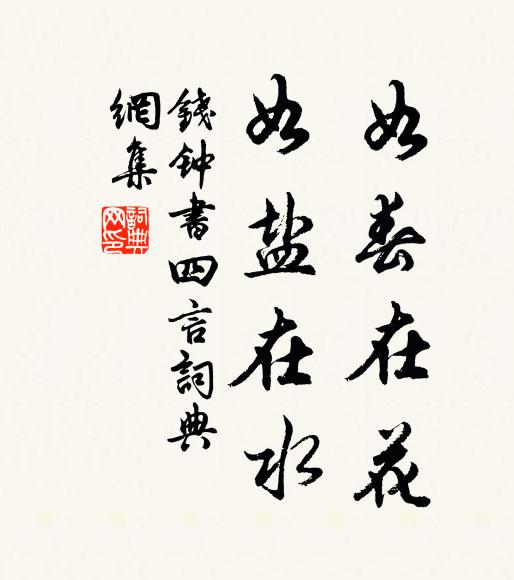 如春在花
如盐在水
錢钟書四言詞典
網集
詞典
网印